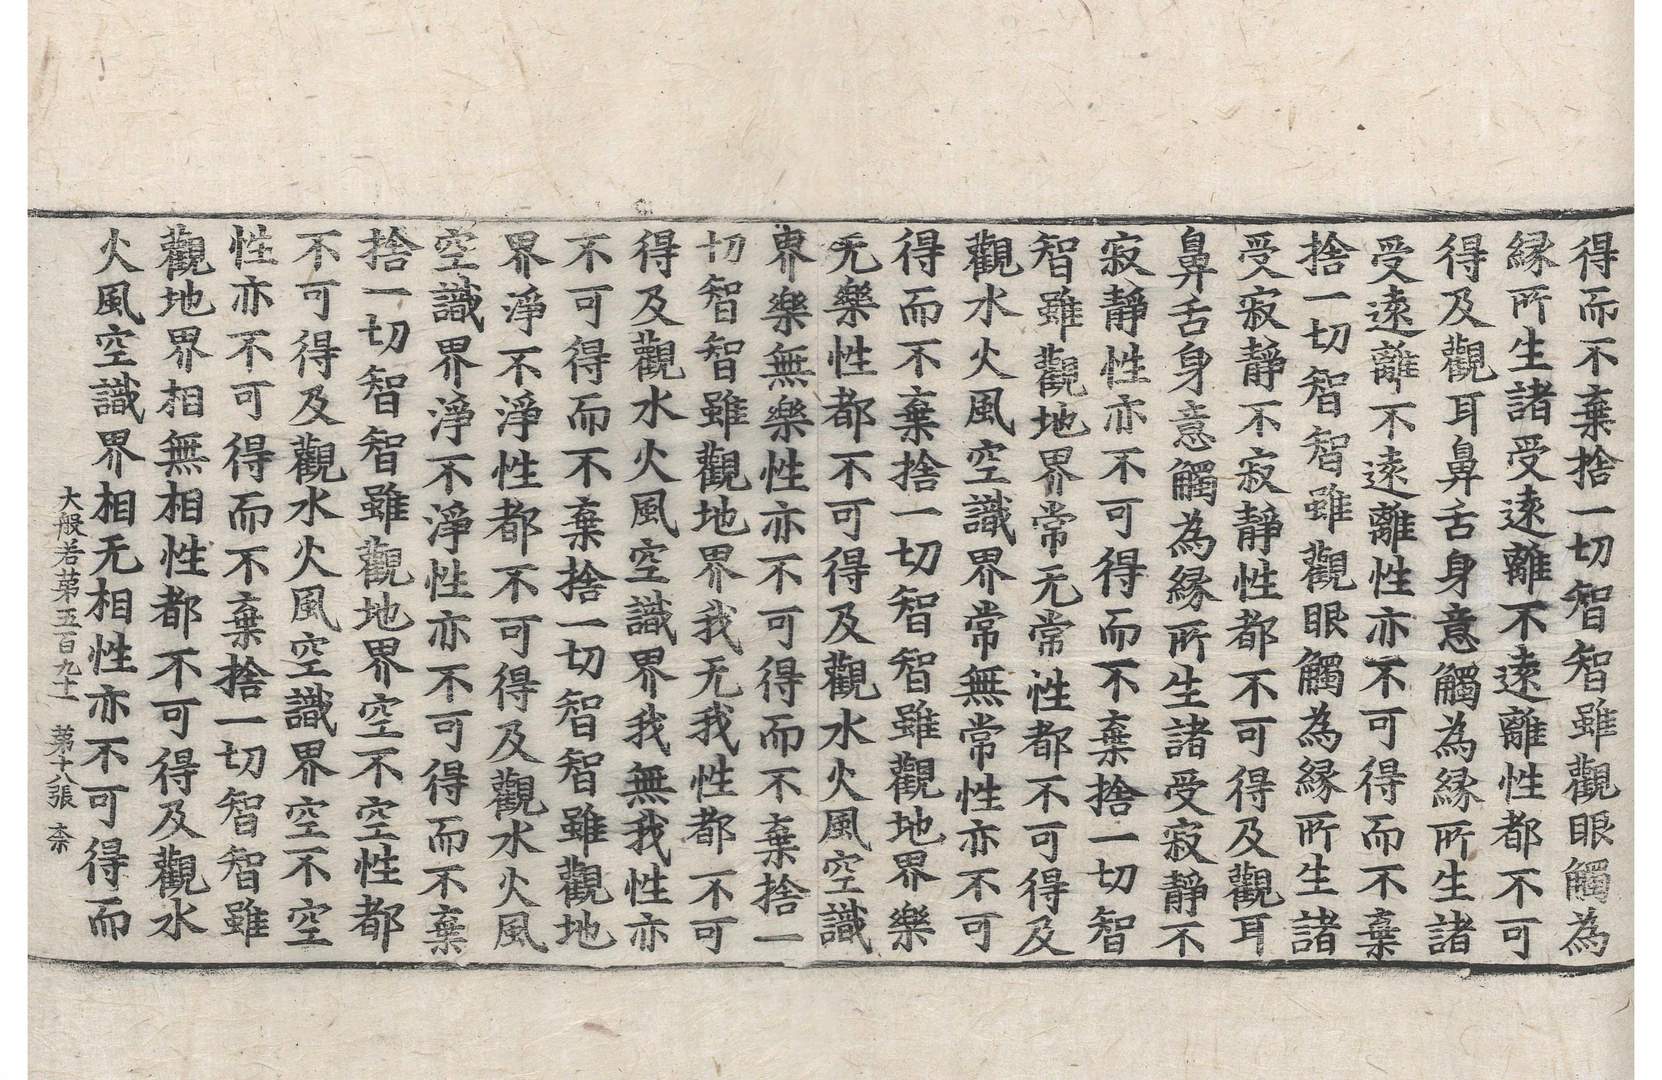 得而不棄捨一切智智雖觀眼觸為
緣所生諸受遠離不遠離性都不可
得及觀耳鼻舌身意觸為緣所生諸
受遠離不遠離性亦不可得而不棄
捨一切智智雖觀眼觸為緣所生諸
受寂靜不寂靜性都不可得及觀耳
鼻舌身意觸為緣所生諸受寂靜不
寂靜性亦不可得而不棄捨一切智
智雖觀地界常无常性都不可得及
觀水火風空識界常無常性亦不可
得而不棄捨一切智智雖觀地界樂
无樂性都不可得及觀水火風空識
界樂無樂性亦不可得而不棄捨一
切智智雖觀地界我无我性都不可
得及觀水火風空識界我無我性亦
不可得而不棄捨一切智智雖觀地
界淨不淨性都不可得及觀水火風
空識界淨不淨性亦不可得而不棄
捨一切智智雖觀地界空不空性都
不可得及觀水火風空識界空不空
性亦不可得而不棄捨一切智智雖
觀地界相無相性都不可得及觀水
火風空識界相无相性亦不可得而
大般若第五百九十一 第十八張 柰